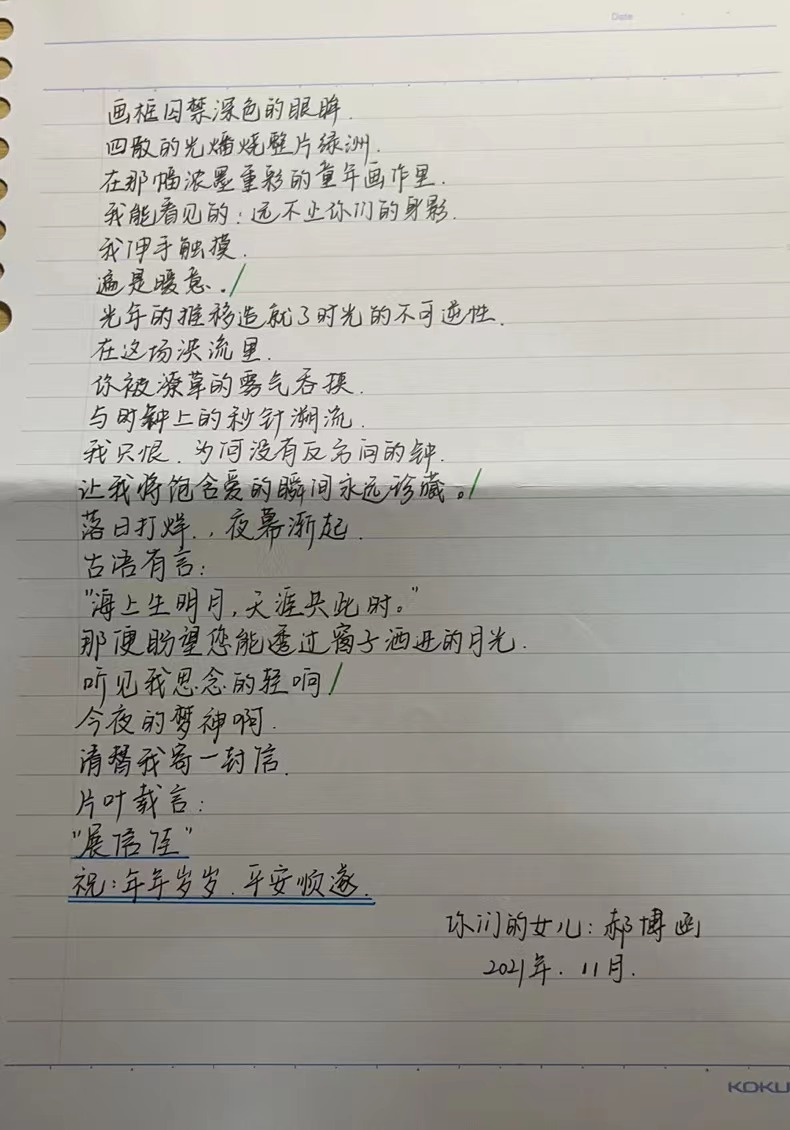 Date
画框囚禁深色的眼眸.
四散的光燔烧整片绿洲.
在那幅浓墨重彩的童年画作里.
我能看见的：远不止你们的身影.
我伸手触摸.
遍是暖意。/
光年的推移造就了时光的不可逆性.
在这场洪流里.
你被潦草的雾气吞摸.
与时钟上的秒针溯流.
我只恨.为何没有反方向的钟.
让我将饱含爱的瞬间永远珍藏。/
落日打烊.,夜幕渐起.
古语有言：
"海上生明月,天涯共此时。"
那便盼望您能透过窗子洒进的月光.
听见我思念的轻响/
今夜的梦神啊.
请替我寄一封信.
片叶载言：
"展信佳"
祝：年年岁岁.平安顺遂.
你们的女儿：郝博函
2021年.11月.
KOKU